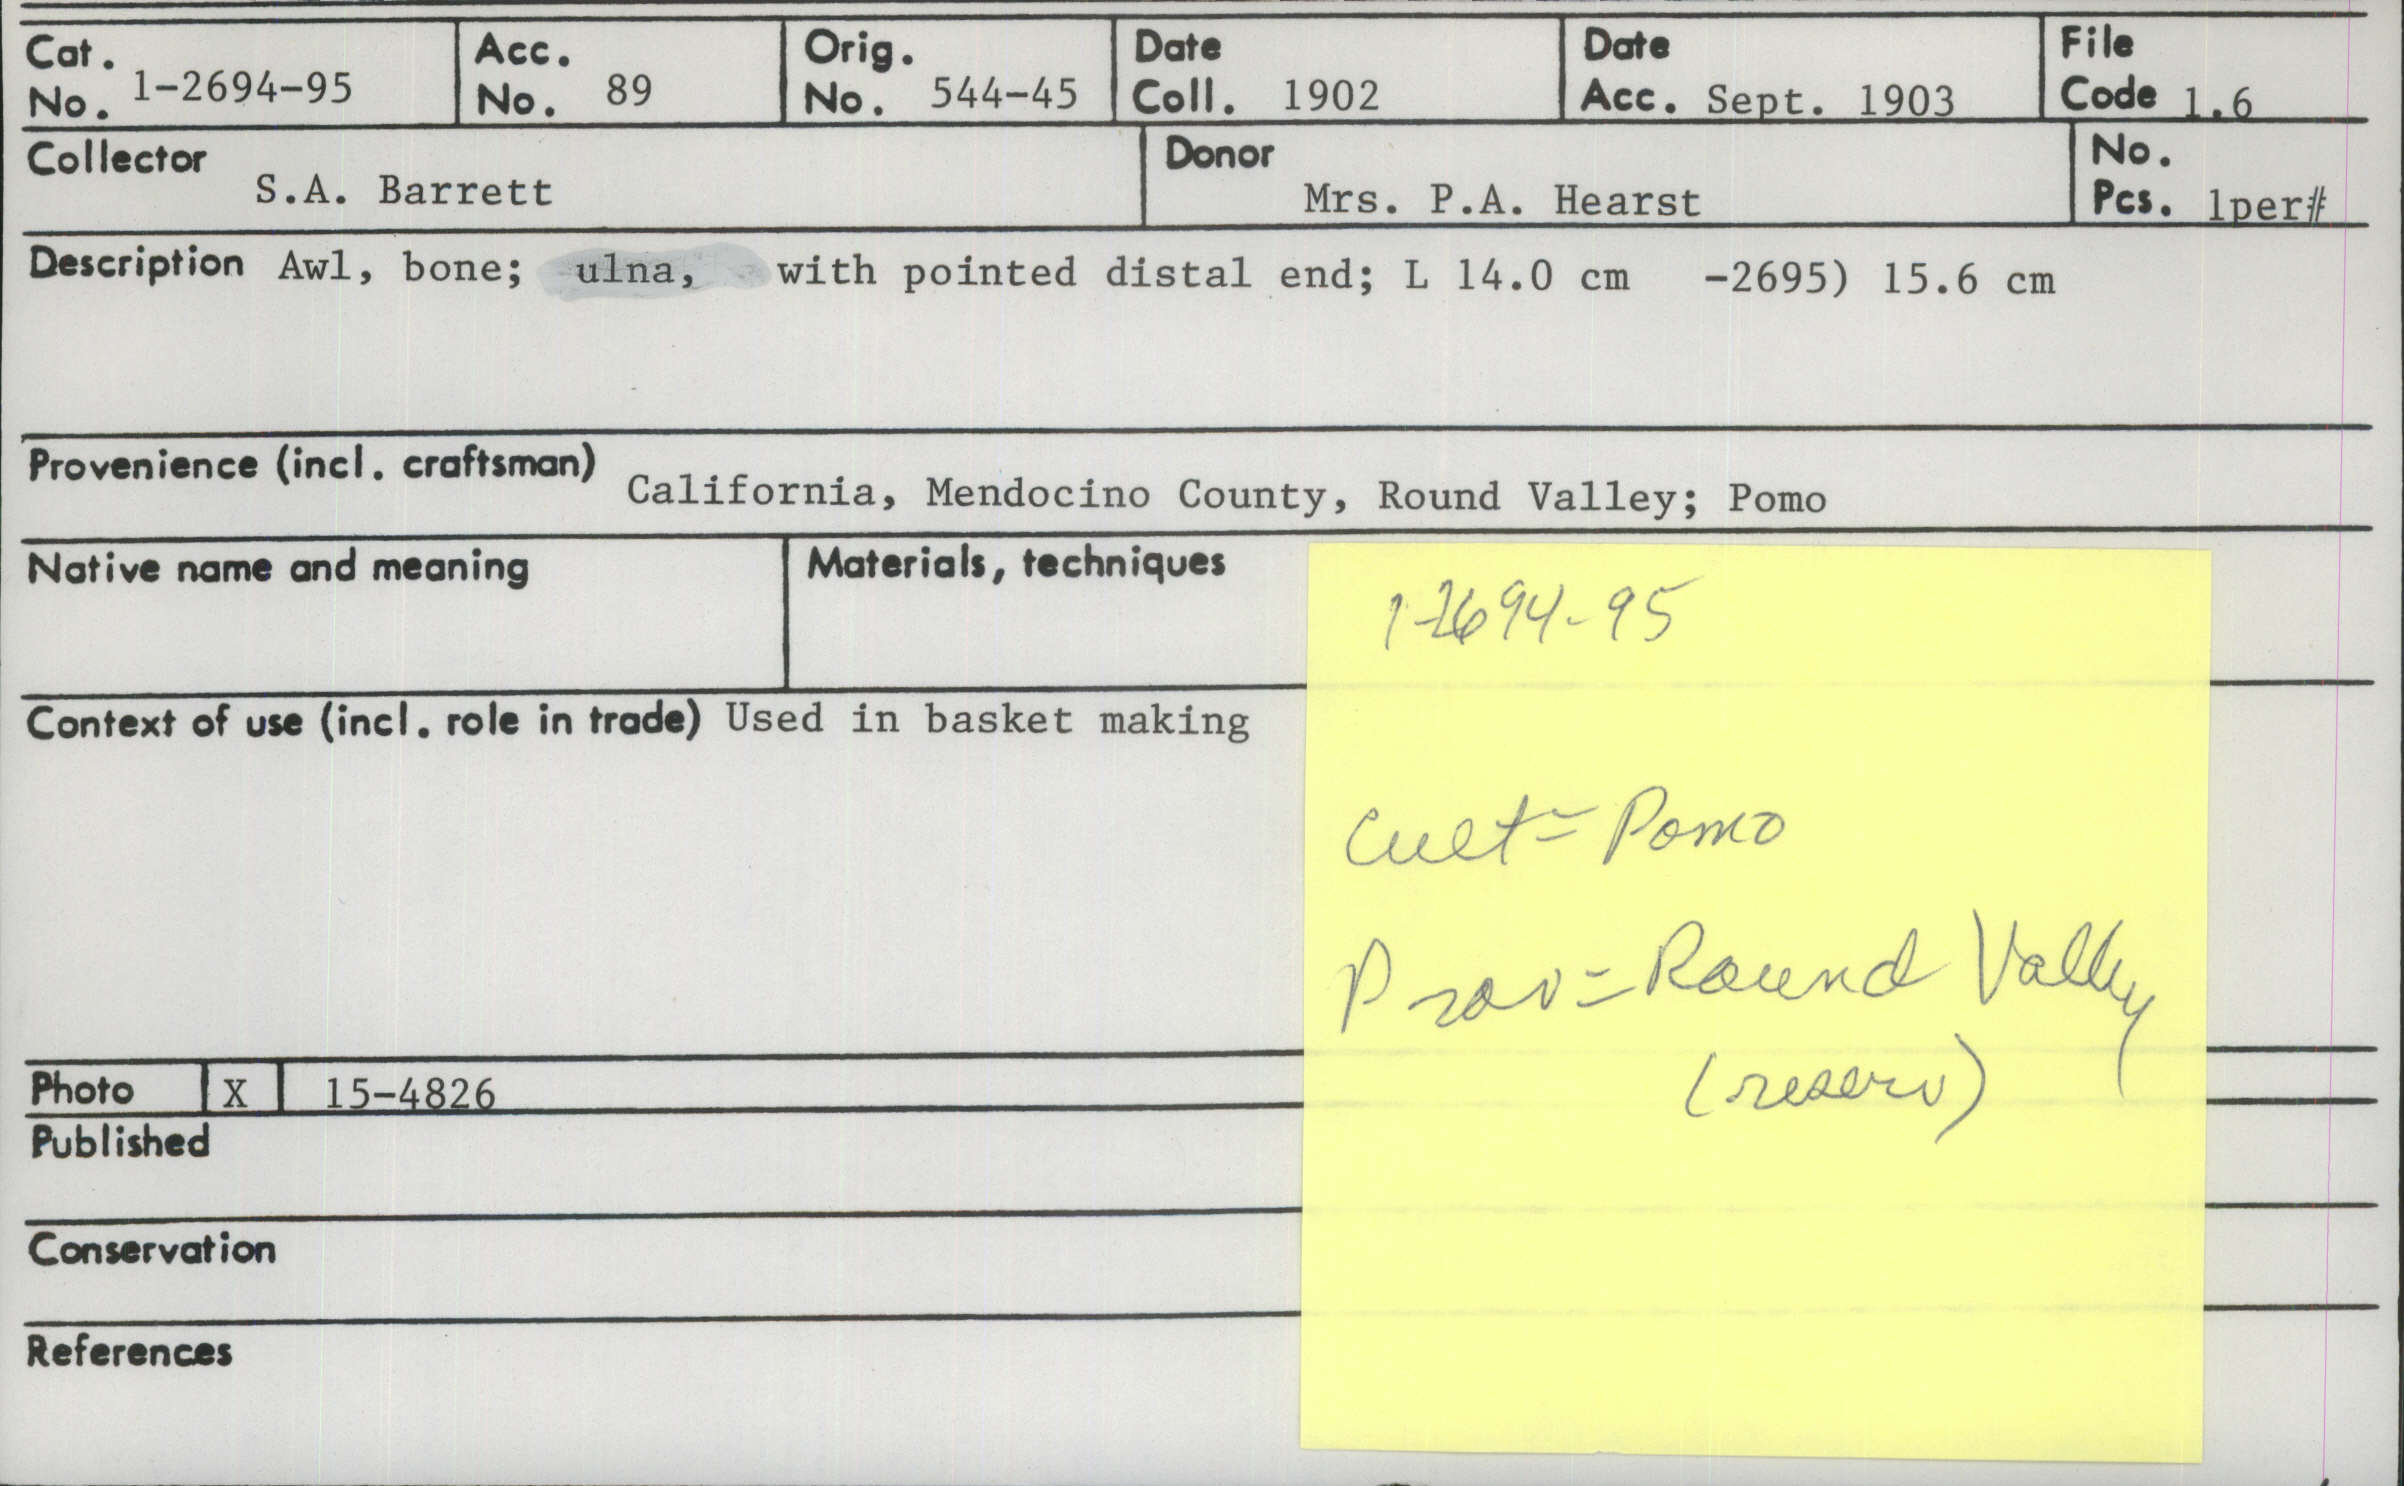 Cat. No. 1-2694-95
Acc. No. 89
Orig. No. 544-45
Date Coll. 1902
Date Acc. Sept. 1903
File Code 1.6
Collector S.A. Barrett
Donor Mrs. P.A. Hearst
No. Pcs. 1per#
Description Awl, bone; ulna, with pointed distal end; L 14.0 cm -2695) 15.6 cm
Provenience (incl. craftsman) California, Mendocino County, Round Valley; Pomo
Native name and meaning
Materials, techniques
Context of use (incl. role in trade) Used in basket making
Photo X 15-4826
Published
Conservation
References
1-2694-95
Cult = Pomo
Prov = Round Valley
(reserv)